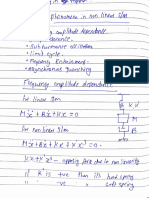 phenomenon in non linear sys
amplitude dependence
Subharmonic oscillation
limit cycle
Frequency Entrainment
Asynchronous Quenching
Frequency amplitude dependence
for linear
Mẍ + Bẋ + Kx = 0
for nonlinear
Mẍ + Bẋ + Kx + K'x³ = 0
Kx + K'x³ - spring force due to non linearity
if K' is +ve then it's hard spring
" " -ve " " soft spring